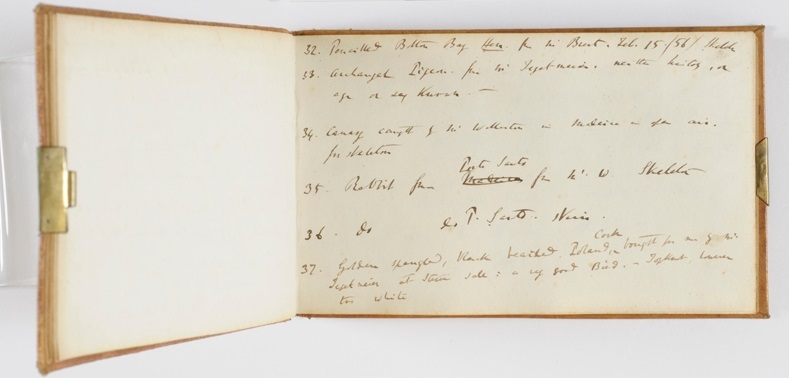 32. Pencilled Bolton Bay Hen. from Mr Brent. Feb. 15 /56/ Skeleton
33. Archangel Pigeon. from Mr Tegetmeier. neither history, or
age or sex Known. —
34. Canary caught by Mr Wollaston in Madeira in open air.
for skeleton
Porto Santo
35. Rabbit from Madeira from Mr. W. Skeleton
36. do do P. Santo. Skin.
Cock
37. Golden spangled, black breasted, Poland, bought for me by Mr
Tegetmeier at Stevens sale: a very good Bird. —
too white